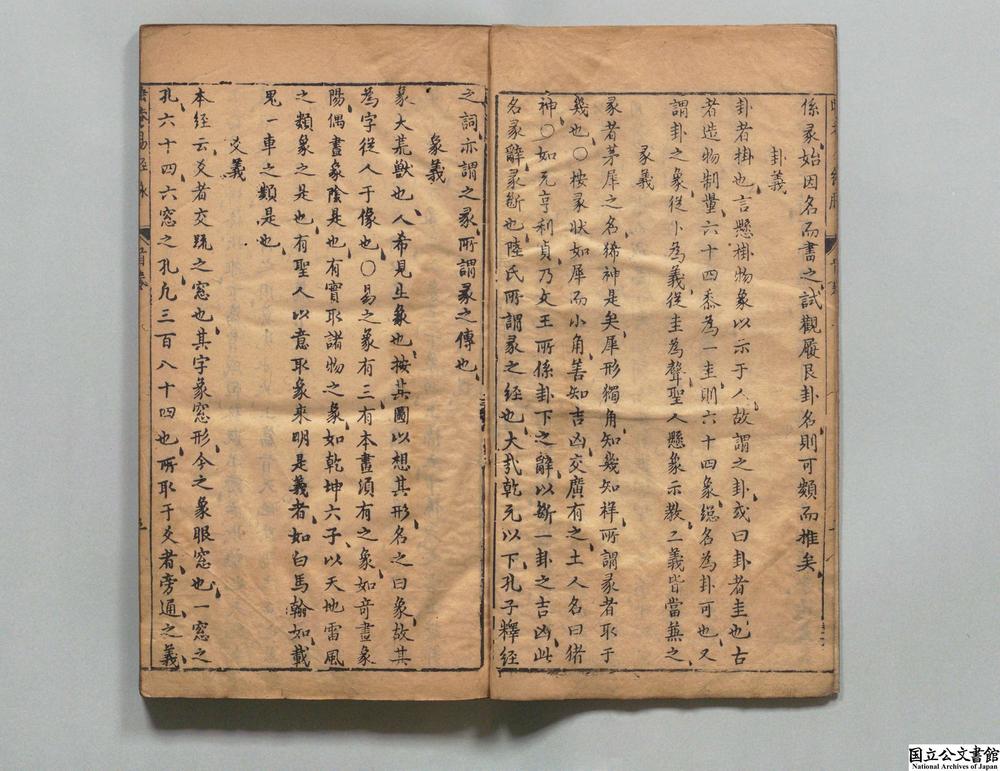 係彖始因名而書之試觀履艮卦名則可類而推矣
卦義
卦者掛也言懸掛物象以示于人故謂之卦或曰卦者圭也古
者造物制量六十四黍為一圭則六十四象總名為卦可也又
謂卦之象從卜為義從圭為聲聖人懸象示教二義皆當兼之
彖義
彖者茅犀之名狶神是矣犀形獨角知幾知祥所謂彖者取于
幾也○按彖狀如犀而小角善知吉凶交廣有之土人名曰猪
神○如元亨利貞乃文王所係卦下之辭以斷一卦之吉凶此
名彖辭彖斷也陸氏所謂彖之經也大哉乾元以下孔子釋經
之詞亦謂之彖所謂彖之傳也
象義
象大荒獸也人希見生象也按其圖以想其形名之曰象故其
為字從人于像也○易之象有三有本畫須有之象如奇畫象
陽偶畫象陰是也有實取諸物之象如乾坤六子以天地雷風
之類象之是也有聖人以意取象來明是義者如白馬翰如載
鬼一車之類是也
爻義
本經云爻者交疏之窓也其字象窓形今之象眼窓也一窓之
孔六十四六窓之孔凡三百八十四也所取于爻者旁通之義
首卷
国立公文書館
National Archives of Japan